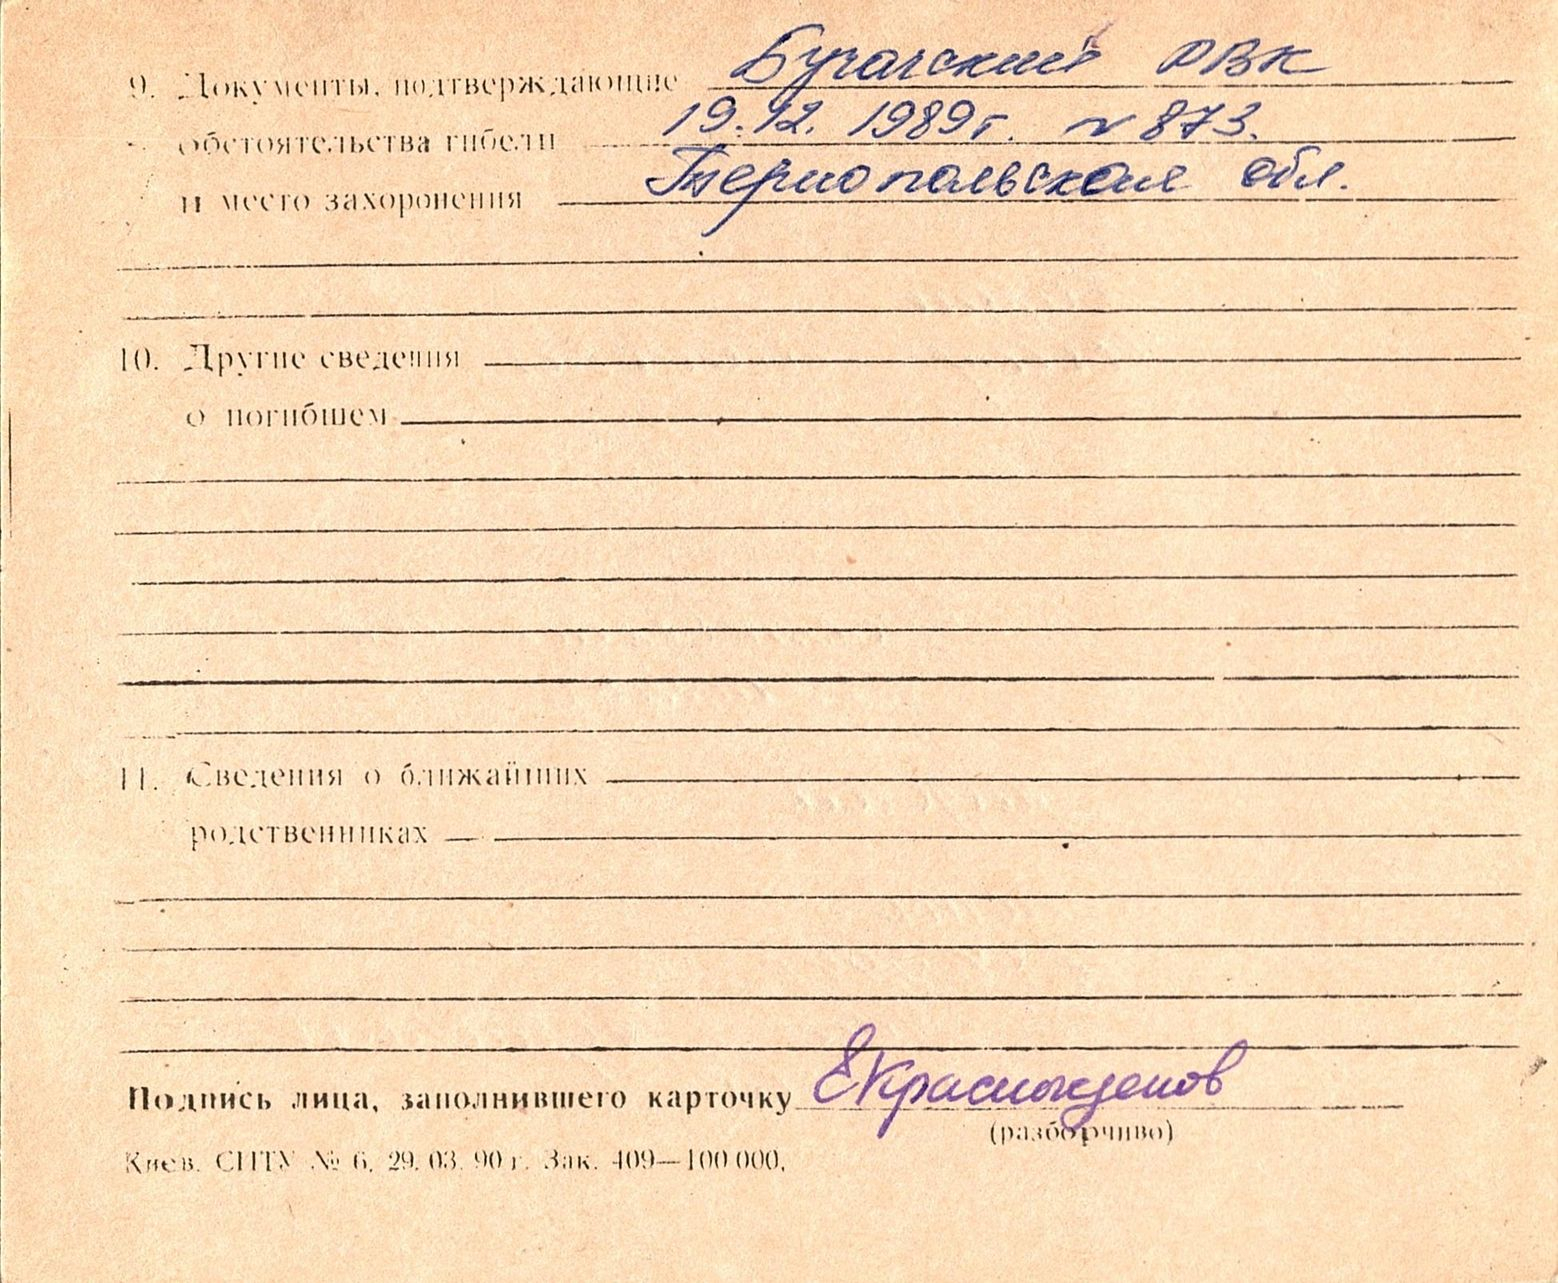 9. Документы, подтверждающие Бучачский РВК
обстоятельства гибели 19.12.1989г. N 873.
и место захоронения Тернопольская обл.
10. Другие сведения
о погибшем
11. Сведения о ближайших
родственниках
Подпись лица, заполнившего карточку
(разборчиво)
Киев. СПТУ № 6. 29. 03. 90 г. Зак. 409—100 000.